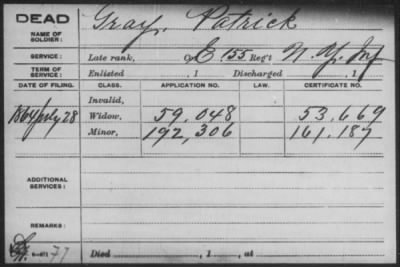 DEAD Gray, Patrick
NAME OF SOLDIER:
SERVICE: Late rank, Co E 155 Reg't N. Y. Inf
TERM OF SERVICE: Enlisted , 1 Discharged , 1
DATE OF FILING. CLASS. APPLICATION NO. LAW. CERTIFICATE NO.
Invalid,
1864 July 28 Widow, 59,048 53,669
Minor, 192,306 161,187
ADDITIONAL SERVICES:
REMARKS:
77 Died , 1 , at